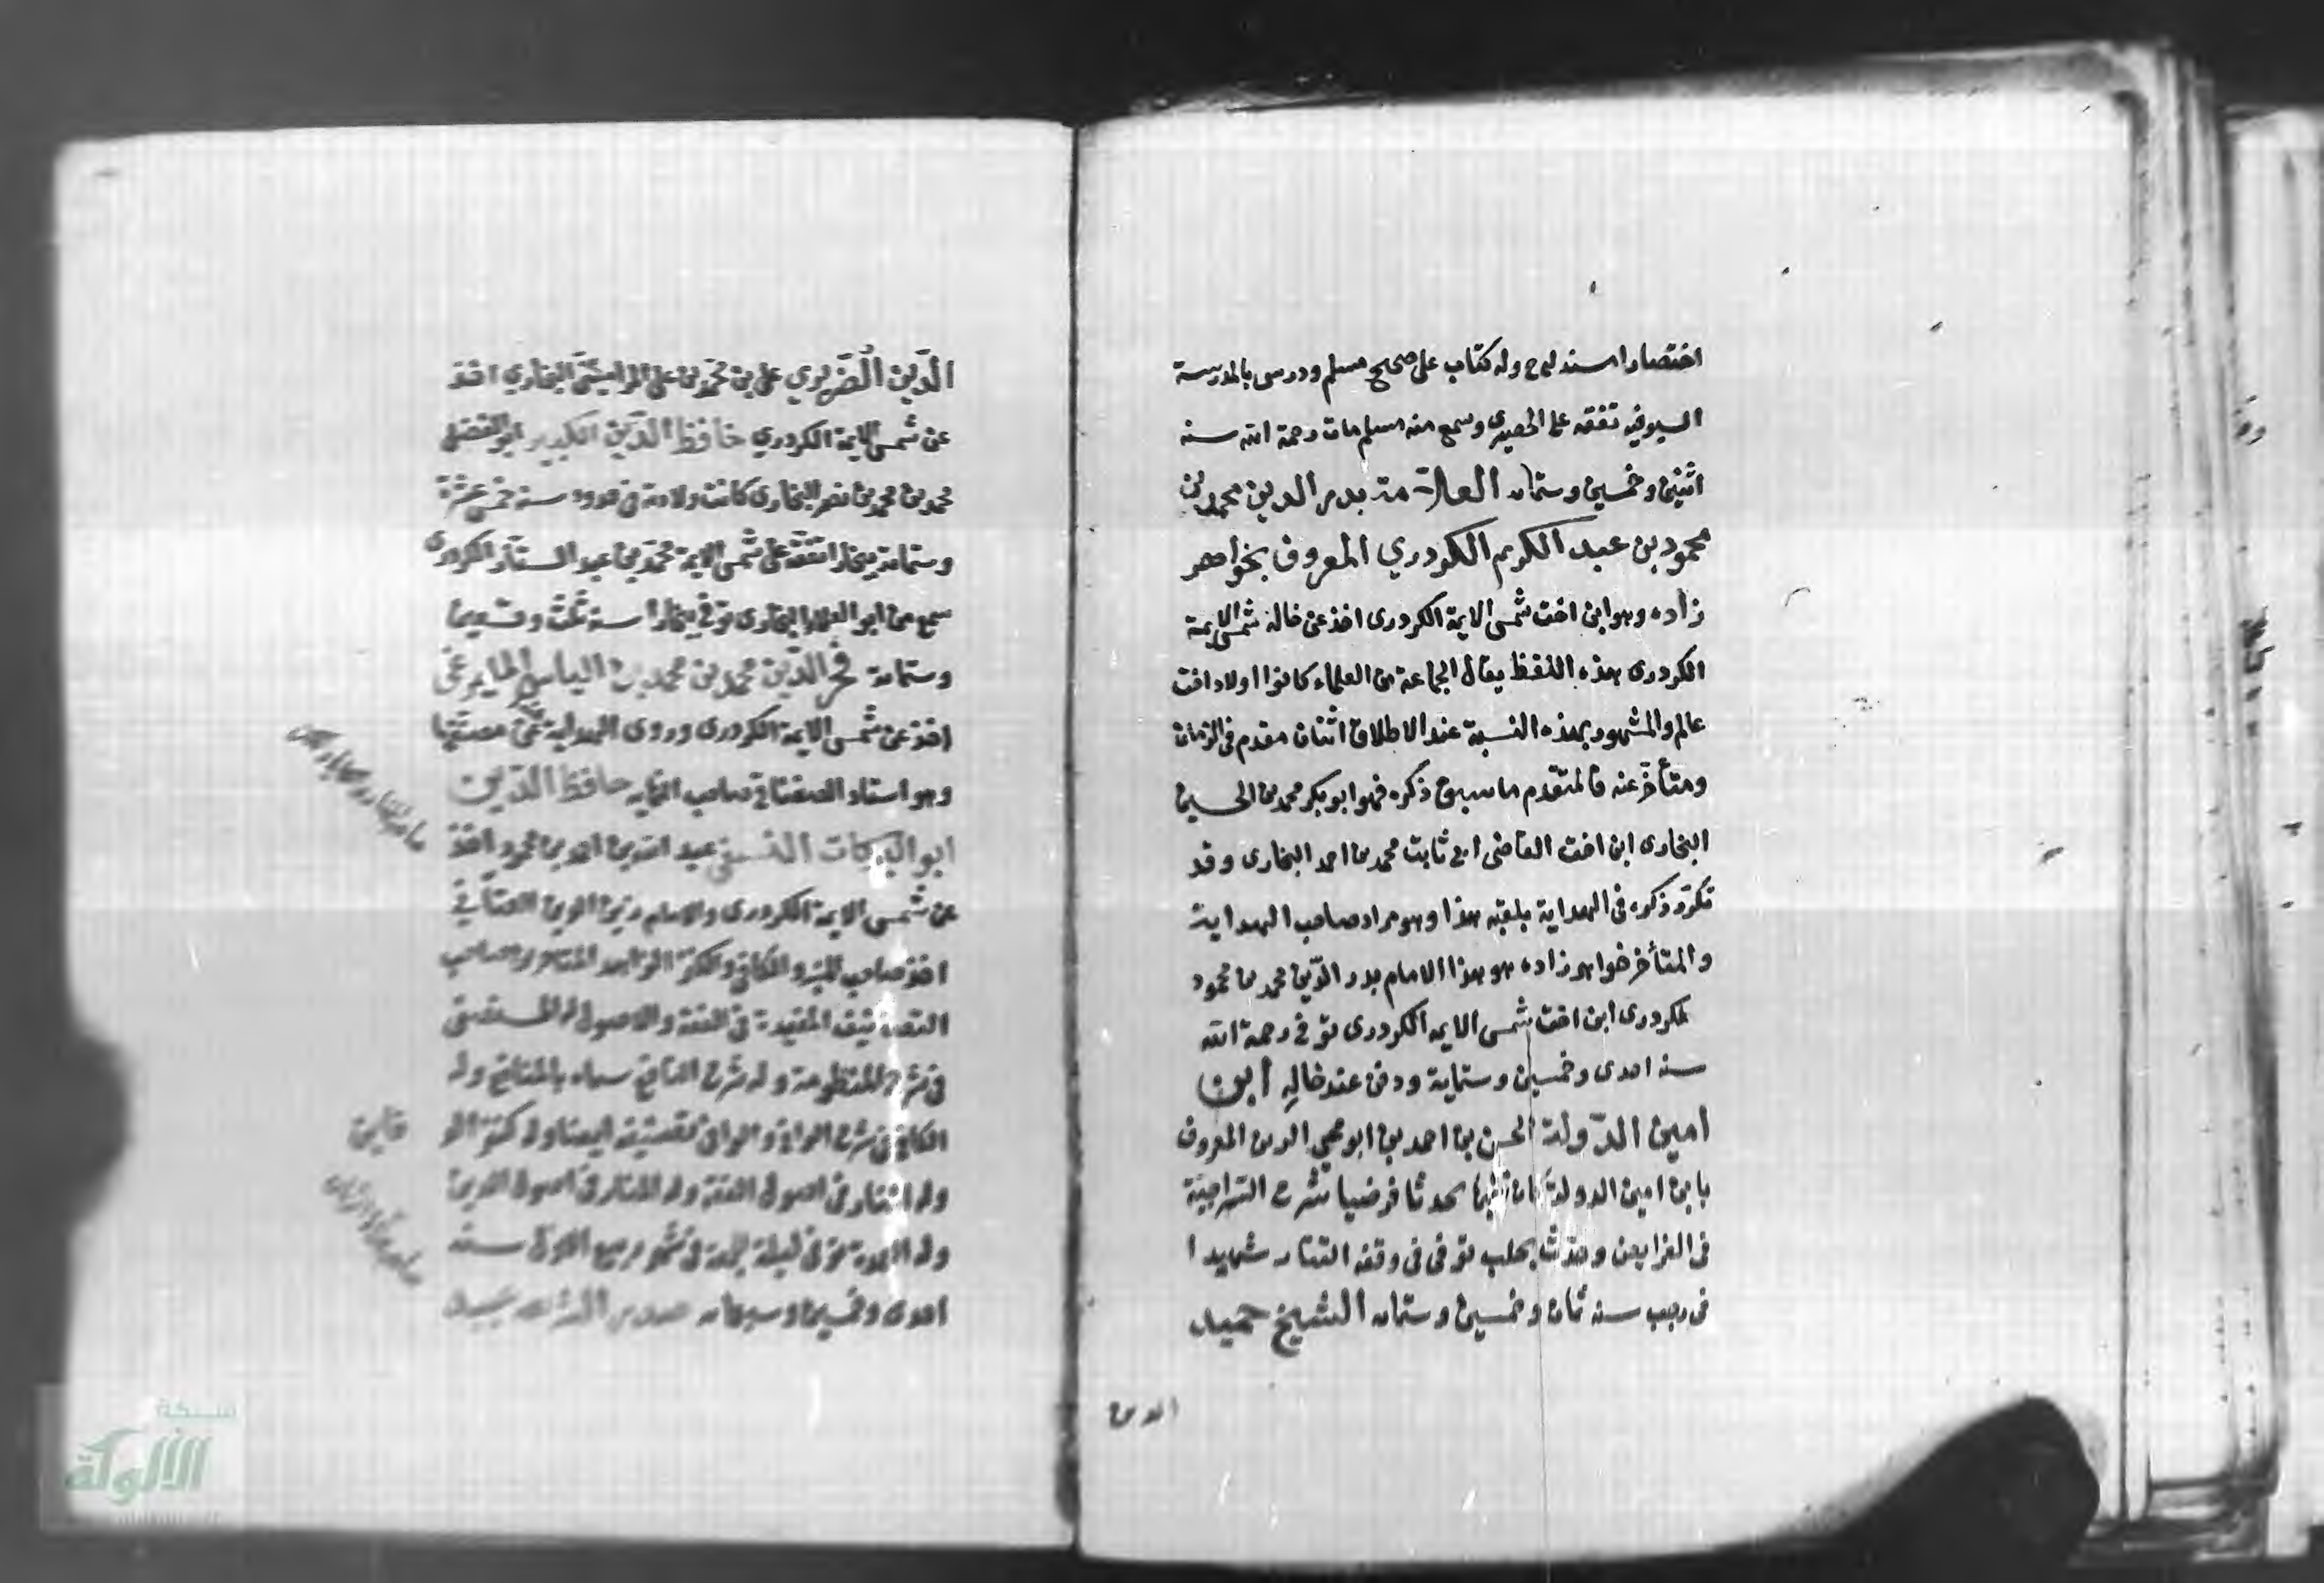 اختصار اسند لوح وله كتاب على صحيح مسلم ودرس بالمدرسة
السيوفيه تفقه على الحصيرى وسمع منه مسلم مات رحمة الله سنه
اثنين وخمسين وستمايه العلامة بدر الدين محمد بن
محمود بن عبد الكريم الكردري المعروف بخواهر
زاده وهو ابن اخت شمس الايمة الكردرى اخذ عن خاله شمس الايمة
الكردرى هذه اللفظ يقال لجماعة من العلماء كانوا اولاد اخت
عالم والمشهور بهذه النسبة عند الاطلاق اثنان مقدم فى الزمان
ومتأخر عنه فالمتقدم ما سبق ذكره فهو ابو بكر محمد بن الحسين
البخارى ابن اخت القاضى ابى ثابت محمد بن احمد البخارى وقد
تكرر ذكره فى الهداية بلقبه هذا وهو مراد صاحب الهداية
والمتأخر خواهر زاده هو هذا الامام بدر الدّين محمد بن محمود
لكردرى ابن اخت شمس الايمه الكردرى توفى رحمة الله
سنه احدى وخمسين وستماية ودفن عند خاله ابن
امين الدّولة الحسن بن احمد بن ابو محيي الدين المعروف
بابن امين الدولة كان فقيها محدثا فرضيا شرح السّراجيّة
فى الفرايض وحدّث بحلب توفى فى وقعه التتار شهيدا
فى رجب سنه ثمان وخمسين وستمايه الشيخ حميد
الدين
الدّين الضّريري على بن محمد بن على الرامشى البخاري اخذ
عن شمس الايمة الكردري حافظ الدّين الكبير ابو الفضل
محمد بن محمد بن نصر البخارى كانت ولادته فى حدود سنة خمس عشرة
وستماية ببخارا تفقه على شمس الايمة محمّد بن عبد الستّار الكردرى
سمع من ابو العلاء البخارى توفّى ببخارا سنة ثلث وتسعين
وستماية فخر الدّين محمد بن محمد بن الياس المايمرغى
اخذ عن شمس الايمة الكردرى وروى الهداية عن مصنّفها
وهو استاد الصغناقى صاحب النهايه حافظ الدّين
ابو البركات النسفى عبد الله بن احمد بن محمود اخذ
عن شمس الايمة الكردرى والامام زين الدين العتّابي
اخذ صاحب الكنز والكافى الزاهد صاحب
التصانيف المفيدة فى الفقه والاصول له المستصفى
فى شرح المنظومة وله شرح النافع سماه بالمنافع وله
الكافى فى شرح الوافى والوافى تصنيفه ايضا وله كنز الد
قايق
وله المنار فى اصول الفقه وله المنار فى اصول الدين
وله العمدة توفى ليلة الجمعة فى شهر ربيع الاول سنة
احدى وخمسين وسبعمايه صدر الشريعه عبيد